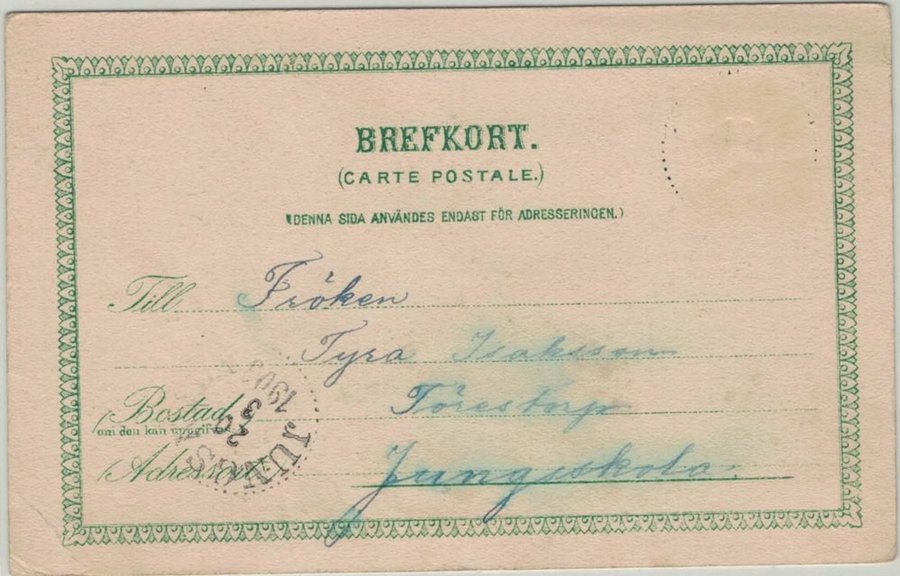 BREFKORT.
(CARTE POSTALE.)
(DENNA SIDA ANVÄNDES ENDAST FÖR ADRESSERINGEN.)
Till Fröken
Tyra Isaksson
Bostad Törestorp
(om den kan uppgifvas)
Adressort Jungsskola